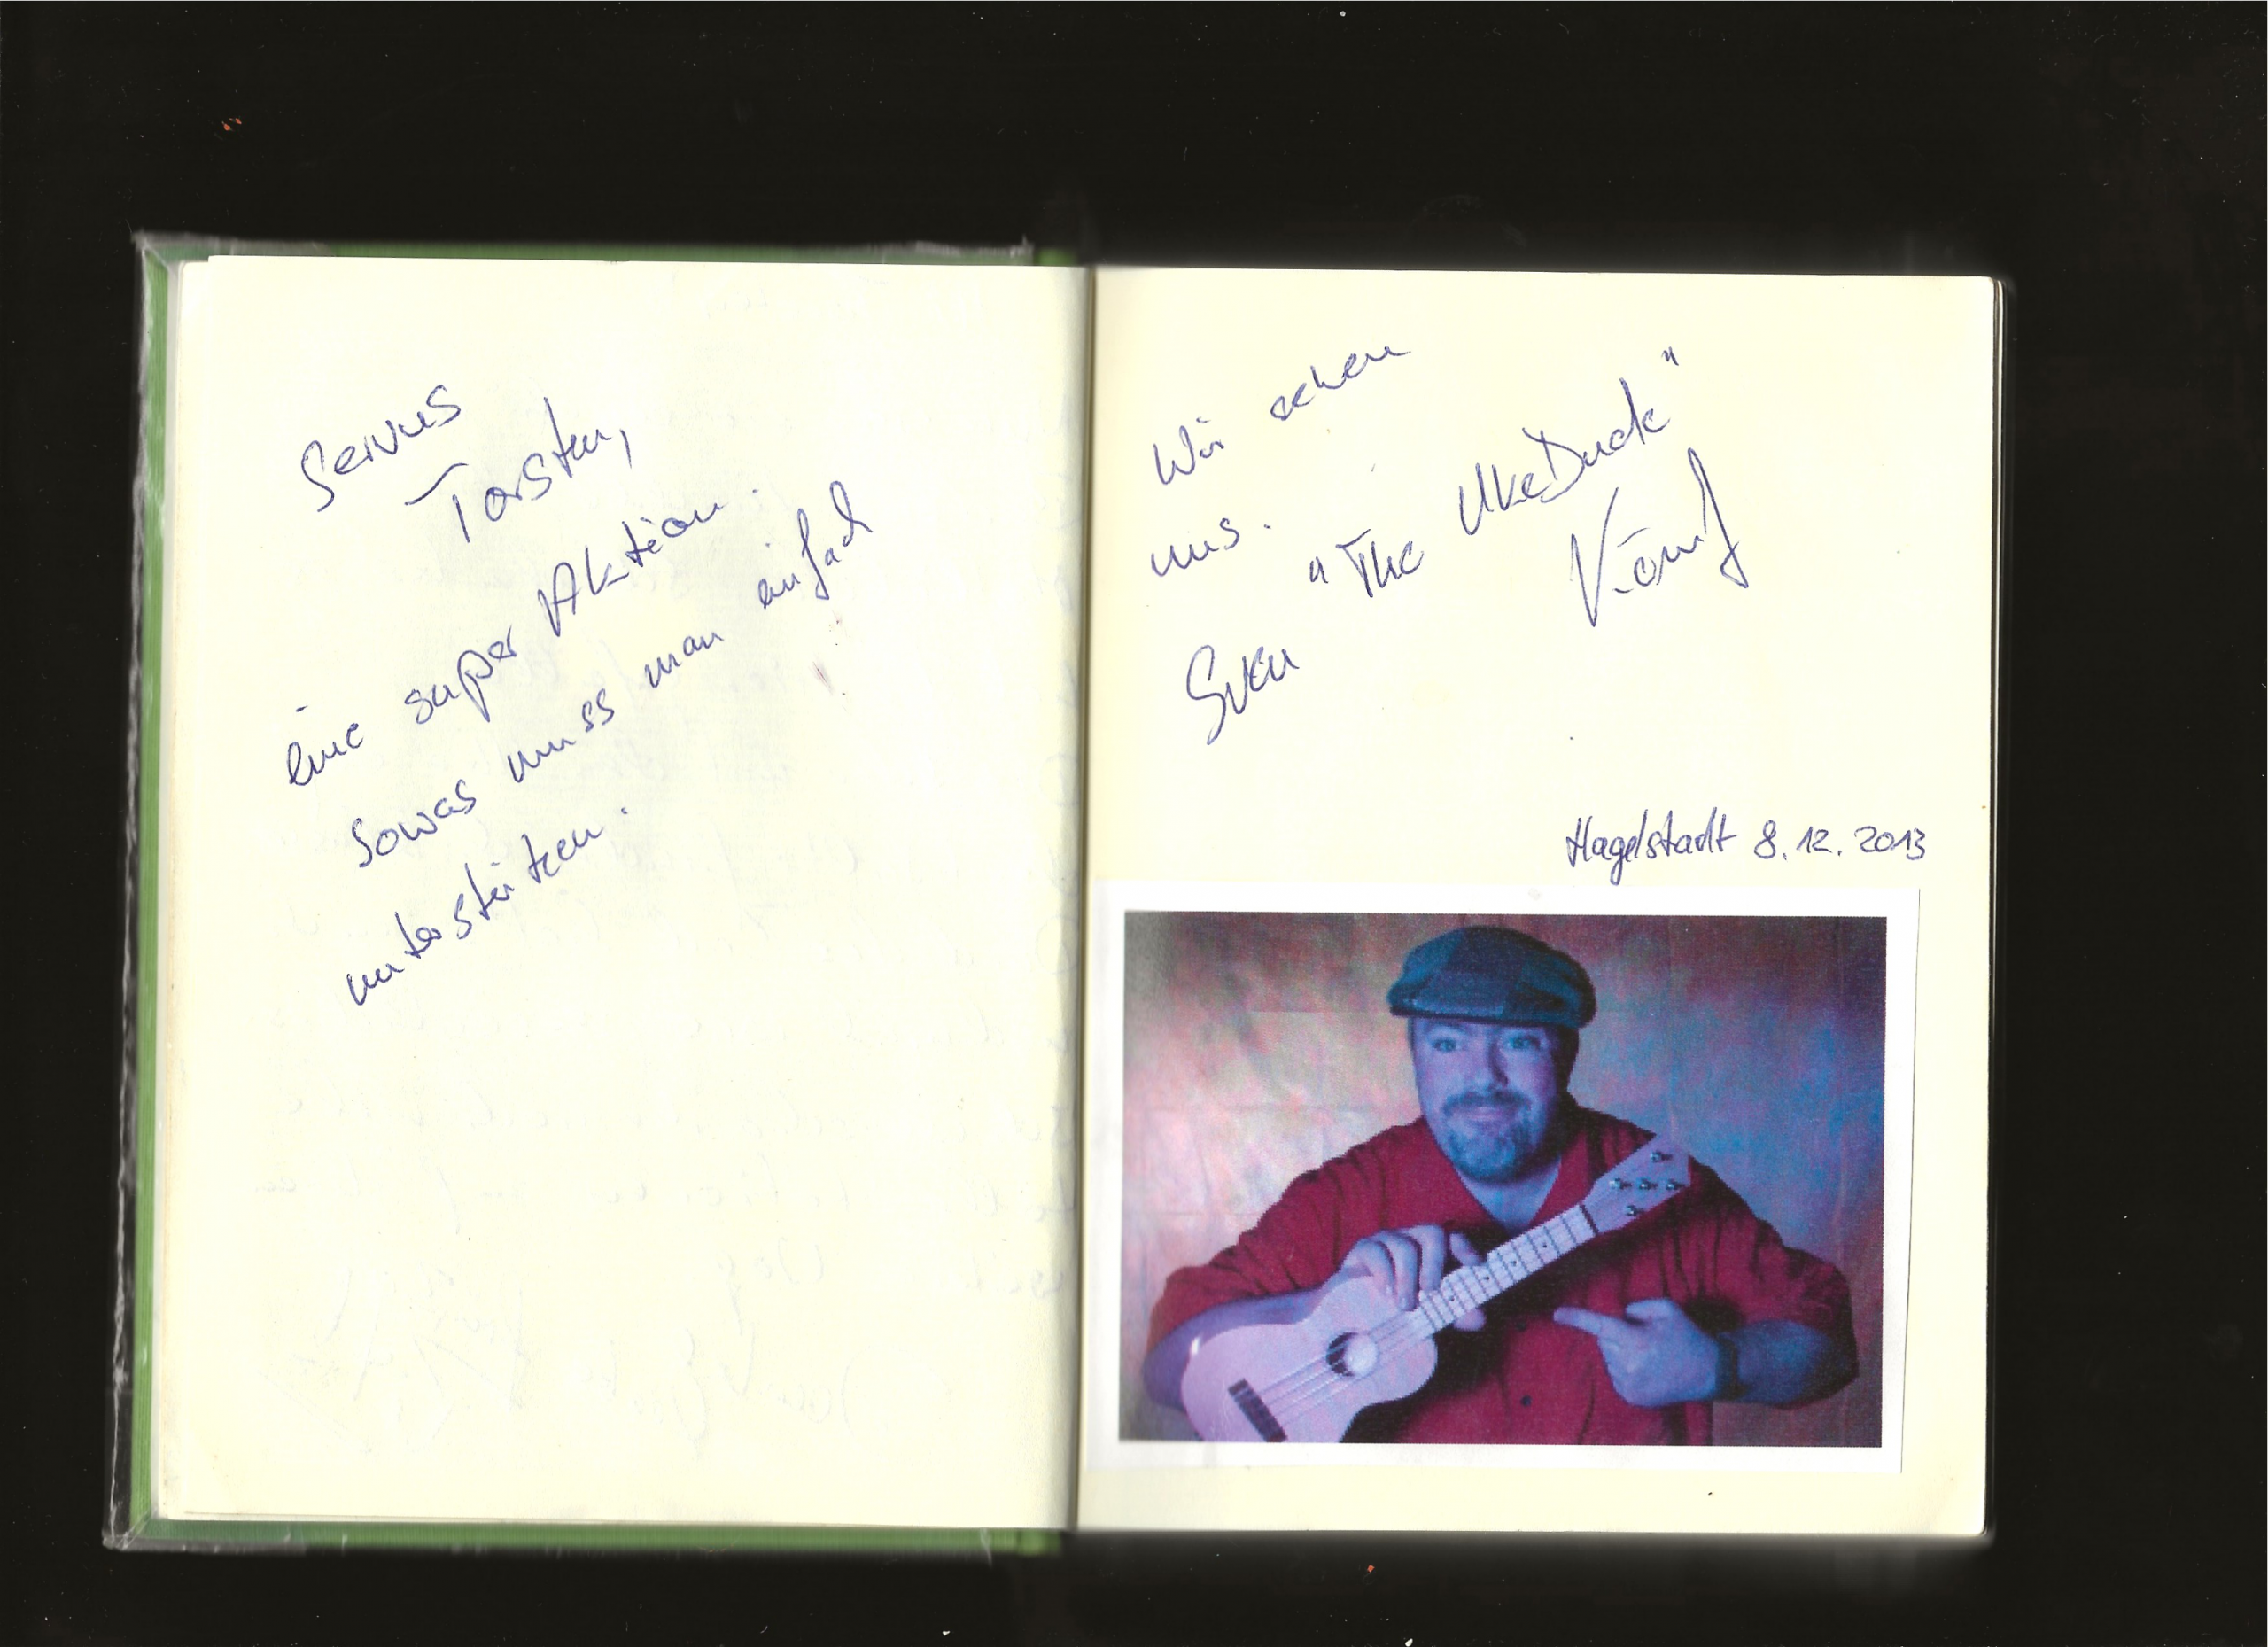 Servus
Torsten,
eine super Aktion.
Sowas muss man einfach
unterstützen.
Wir sehen
uns.
Sven "The UkeDuck"
König
Hagelstadt 8.12.2013